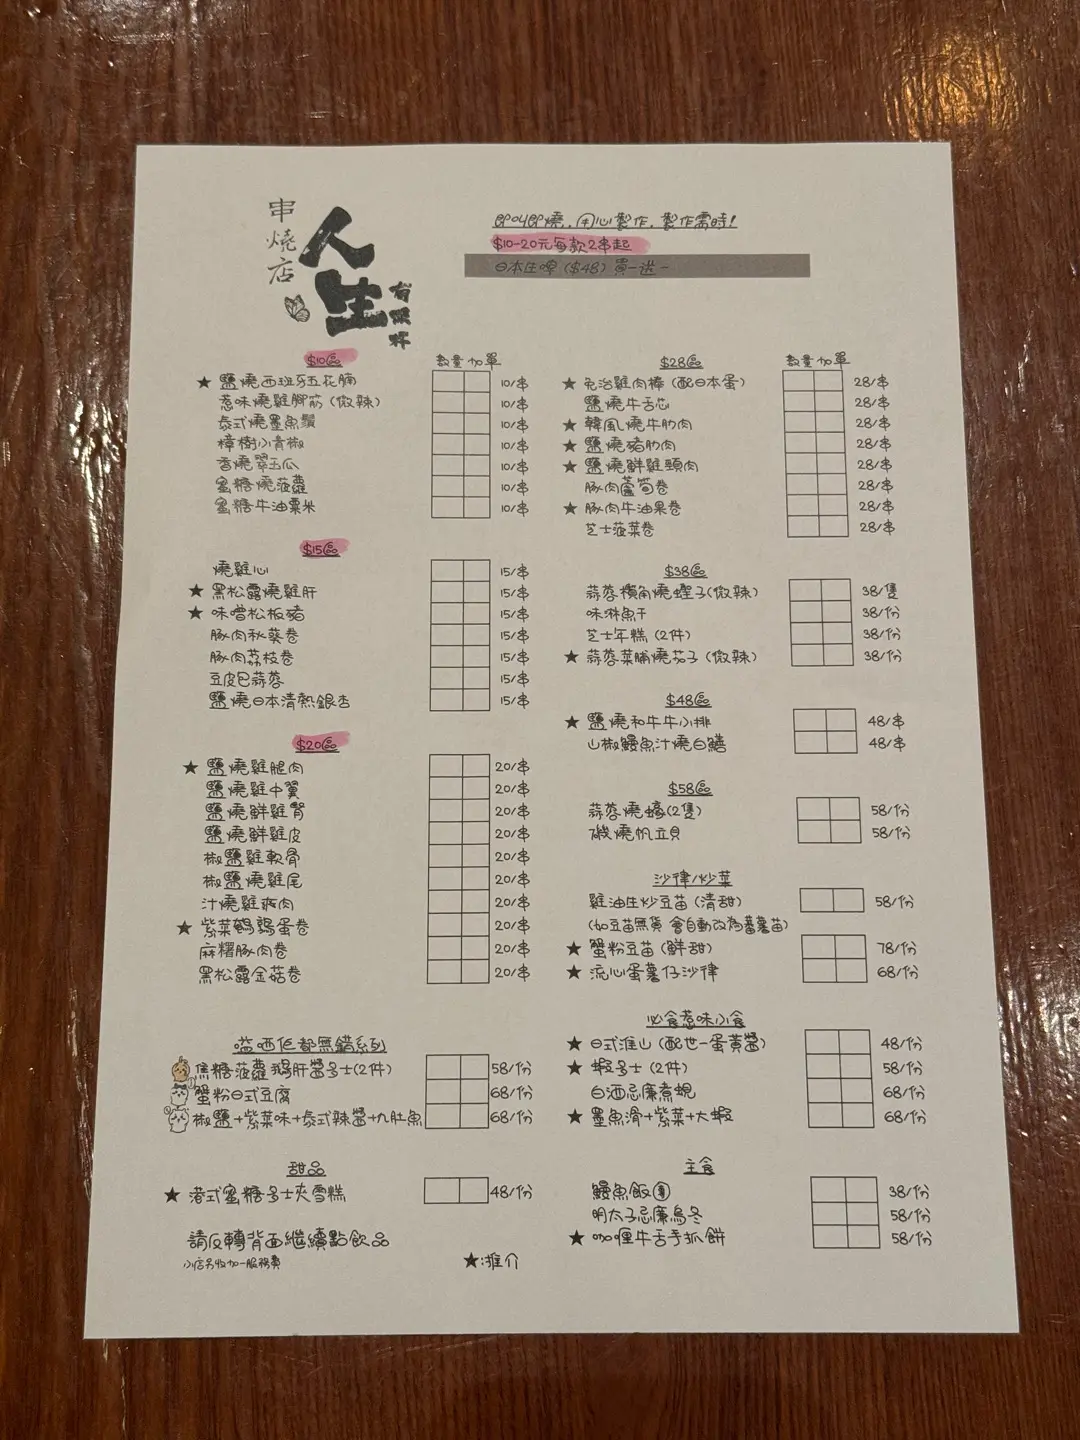 串燒店
人生
有限杯
即叫即燒，用心製作，製作需時！
$10-20元每款2串起
日本生啤 ($48) 買一送一
$10區 數量 加單
★ 鹽燒西班牙五花腩 10/串
惹味燒雞腳筋 (微辣) 10/串
泰式燒墨魚鬚 10/串
樟樹小青椒 10/串
香燒翠玉瓜 10/串
蜜糖燒菠蘿 10/串
蜜糖牛油粟米 10/串
$15區
燒雞心 15/串
★ 黑松露燒雞肝 15/串
★ 味噌松板豬 15/串
豚肉秋葵卷 15/串
豚肉荔枝卷 15/串
豆皮巴蒜蓉 15/串
鹽燒日本清熱銀杏 15/串
$20區
★ 鹽燒雞腿肉 20/串
鹽燒雞中翼 20/串
鹽燒鮮雞腎 20/串
鹽燒鮮雞皮 20/串
椒鹽雞軟骨 20/串
椒鹽燒雞尾 20/串
汁燒雞爽肉 20/串
★ 紫菜鵪鶉蛋卷 20/串
麻糬豚肉卷 20/串
黑松露金菇卷 20/串
嗌晒佢都無錯系列
焦糖菠蘿鵝肝醬多士(2件) 58/份
蟹粉日式豆腐 68/份
椒鹽+紫菜味+泰式辣醬+九肚魚 68/份
甜品
★ 港式蜜糖多士夾雪糕 48/份
請反轉背面繼續點飲品
小店另收加一服務費
★:推介
$28區 數量 加單
★ 免治雞肉棒 (配日本蛋) 28/串
鹽燒牛舌芯 28/串
★ 韓風燒牛肋肉 28/串
★ 鹽燒豬肋肉 28/串
★ 鹽燒鮮雞頸肉 28/串
豚肉蘆筍卷 28/串
★ 豚肉牛油果卷 28/串
芝士菠菜卷 28/串
$38區
蒜蓉欖角燒蟶子(微辣) 38/隻
味淋魚干 38/份
芝士年糕 (2件) 38/份
★ 蒜蓉菜脯燒茄子 (微辣) 38/份
$48區
★ 鹽燒和牛牛小排 48/串
山椒鰻魚汁燒白鱔 48/串
$58區
蒜蓉燒蠔(2隻) 58/份
磯燒帆立貝 58/份
沙律/炒菜
雞油生炒豆苗 (清甜) 58/份
(如豆苗無貨 會自動改為蕃薯苗)
★ 蟹粉豆苗 (鮮甜) 78/份
★ 流心蛋薯仔沙律 68/份
必食惹味小食
★ 日式淮山 (配世一蛋黃醬) 48/份
★ 蝦多士 (2件) 58/份
白酒忌廉煮蜆 68/份
★ 墨魚滑+紫菜+大蝦 68/份
主食
鰻魚飯團 38/份
明太子忌廉烏冬 58/份
★ 咖喱牛舌手抓餅 58/份